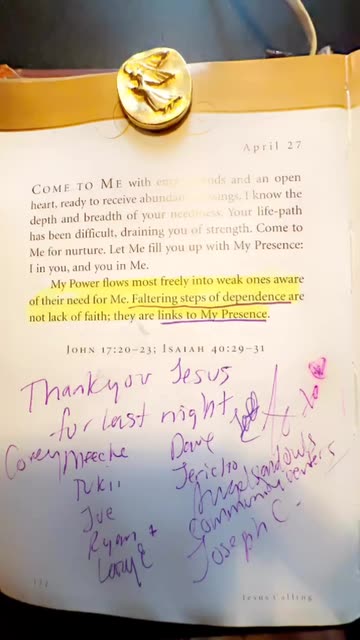 April 27
COME TO ME with empty hands and an open
heart, ready to receive abundant blessings. I know the
depth and breadth of your neediness. Your life-path
has been difficult, draining you of strength. Come to
Me for nurture. Let Me fill you up with My Presence:
I in you, and you in Me.
My Power flows most freely into weak ones aware
of their need for Me. Faltering steps of dependence are
not lack of faith; they are links to My Presence.
JOHN 17:20–23; ISAIAH 40:29–31
Thank you Jesus
for last night
Corey Meeche Dave
Tukii Jericho
Joe
Ryan + Community centers
Larry E Joseph C.
Jesus Calling